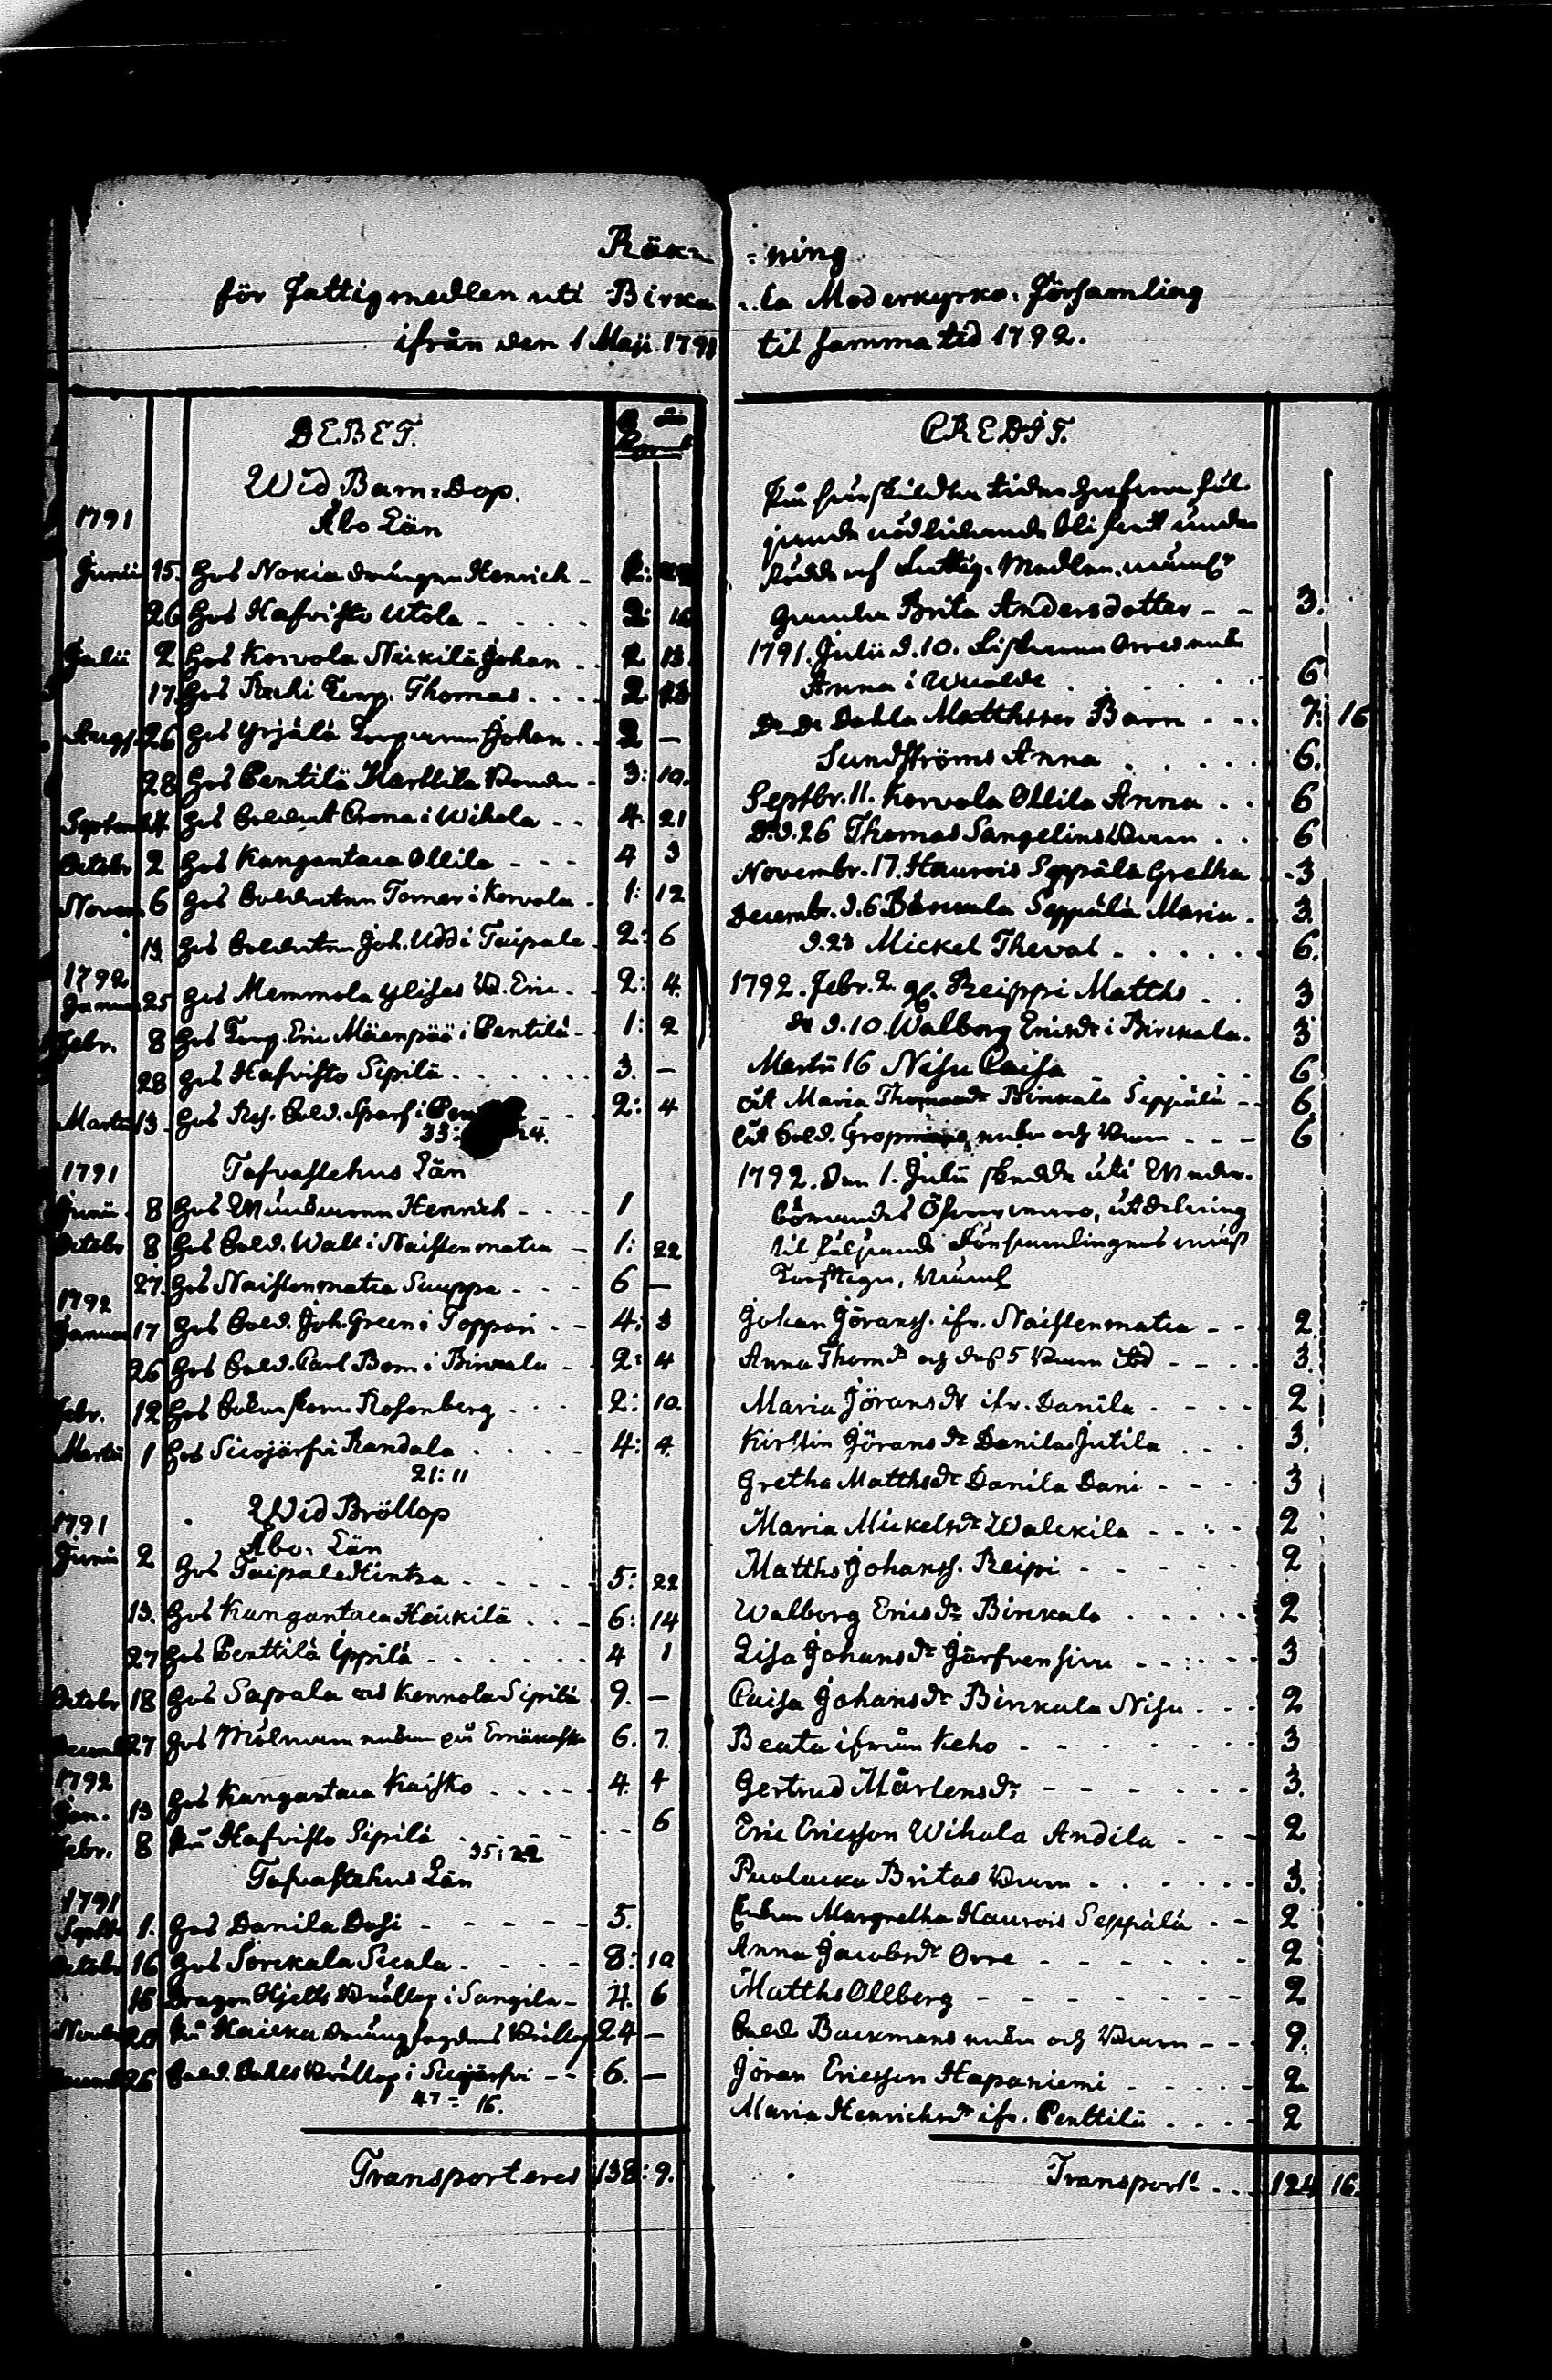 Räkn=ning
för Fattigmedlen uti Birkala Moderkyrko-Församling
ifrån den 1 Maji 1791 til samma tid 1792.
DEBET.
Wid Barn-Dop.
1791 Åbo Län
Junii 15. hos Nokia drängen Henrich
26 hos Hafvisto Utola 2: 16
Julii 2 hos Korvola Heikilä Johan 2 13
17 hos Torp. Thomas 2 13
Aug. 26 hos Yrjälä Torparen Johan 2 –
28 hos Pentilä Harttila 3: 10.
Septemb. hos Soldat i Wihola 4. 21
Octobr 2 hos Kangantaca Ollila 4 3
Novem. 6 hos Soldaten Torner i Korvola 1: 12
13. hos Soldaten Joh. Udd i Taipale 2: 6
1792
Januar 25 hos Memmola Eric 2: 4.
Febr. 8 hos Torp. Eric Mäenpää i Pentilä 1: 2
28 hos Hafvisto Sipilä 3. –
Martii 13. hos Res. Sold. Sparf i 2: 4
33: 24.
1791 Tafvastehus Län
Junii 8 hos Henrich 1
Octobr 8 hos Sold. Wall i Naistenmatca 1: 22
27. hos Naistenmatca Suuppa 6 –
1792
Januar 17 hos Sold. Joh. Green i Toppari 4: 3
26 hos Sold. Carl Bom i Birkala 2: 4
Febr. 12 hos Rosenberg 2: 10.
Martii 1 hos Siicojärfvi Kandala 4: 4.
21: 11
Wid Bröllop
1791 Åbo Län
Junii 2 hos Taipale Hintza 5: 22
13. hos Kangantaca Heickilä 6: 14
27 hos Penttilä Eppilä 4 1
Octobr 18 hos Sapala och Kennola Sipilä 9. –
Decemb 27 hos på 6. 7.
1792
Jan. 13 hos Kangantaca Kaisko 4. 4
Febr. 8 på Hafvisto Sipilä 6
35: 22
Tafvastehus Län
1791
Septb 1. hos Danila Dasi 5.
Octobr 16 hos Sorckala Sicala 8: 10
16 Dragon Hjelts Bröllop i Sangila 4. 6
Novb 20 på Haicka Bröllop 24 –
Decemb 26 Sold. Dahls Bröllop i Siicojärfvi 6. –
47 = 16.
Transporteres 138: 9.
CREDIT.
På särskildta tider hafva föl-
jande nödlidande blifvit under-
stödde af Fattig-Medlen, näml.
Brita Andersdotter 3.
1791. Julii d. 10.
Anna i 6
Dahla Matthsses Barn 7: 16
Sundströms Anna 6.
Septbr. 11. Korvola Ollila Anna 6
D. d. 26 Thomas Sangelins Barn 6
Novembr. 17. Haurois Seppälä Gretha 3
Decembr. d. 6 Birckala Seppälä Maria 3.
d. 23 Mickel Theval 6.
1792. Febr. 2. Reippi Matths 3
d. 10. Walborg Ericsdr i Birckala. 3
Martii 16 Nisu Caisa 6
åt Maria Thomasdr Birckala Seppälä 6.
åt Sold. och Barn 6
1792. Den 1. Julii skedde uti
utdelning
til följande Församlingens
Torftiga, Näml
Johan Jöranss. ifr. Naistenmatca 2.
Anna Thomdr och dess 5 Barn 3.
Maria Jöransdr ifr. Danila 2
Kirstin Jöransdr Danila Jutila 3.
Gretha Matthsdr Danila Dani 3
Maria Mickelsdr Walckila 2
Matths Johanss. Reipi 2
Walborg Ericsdr Birckala 2
Lisa Johansdr Järfvensivu 3
Caisa Johansdr Birckala Nisu 2
Beata ifrån Keho 3
Gertrud Mårtensdr 3.
Eric Ericsson Wihola Andila 2
Puolacka Britas Barn 3.
Enkan Margretha Haurois Seppälä 2
Anna Jacobsdr Orre 2
Matths Ollberg 2
Sold. Backmans enka och Barn 9.
Jöran Ericsson Hapaniemi 2
Maria Henricsdr ifr. Penttilä 2
Transport. 124 16.